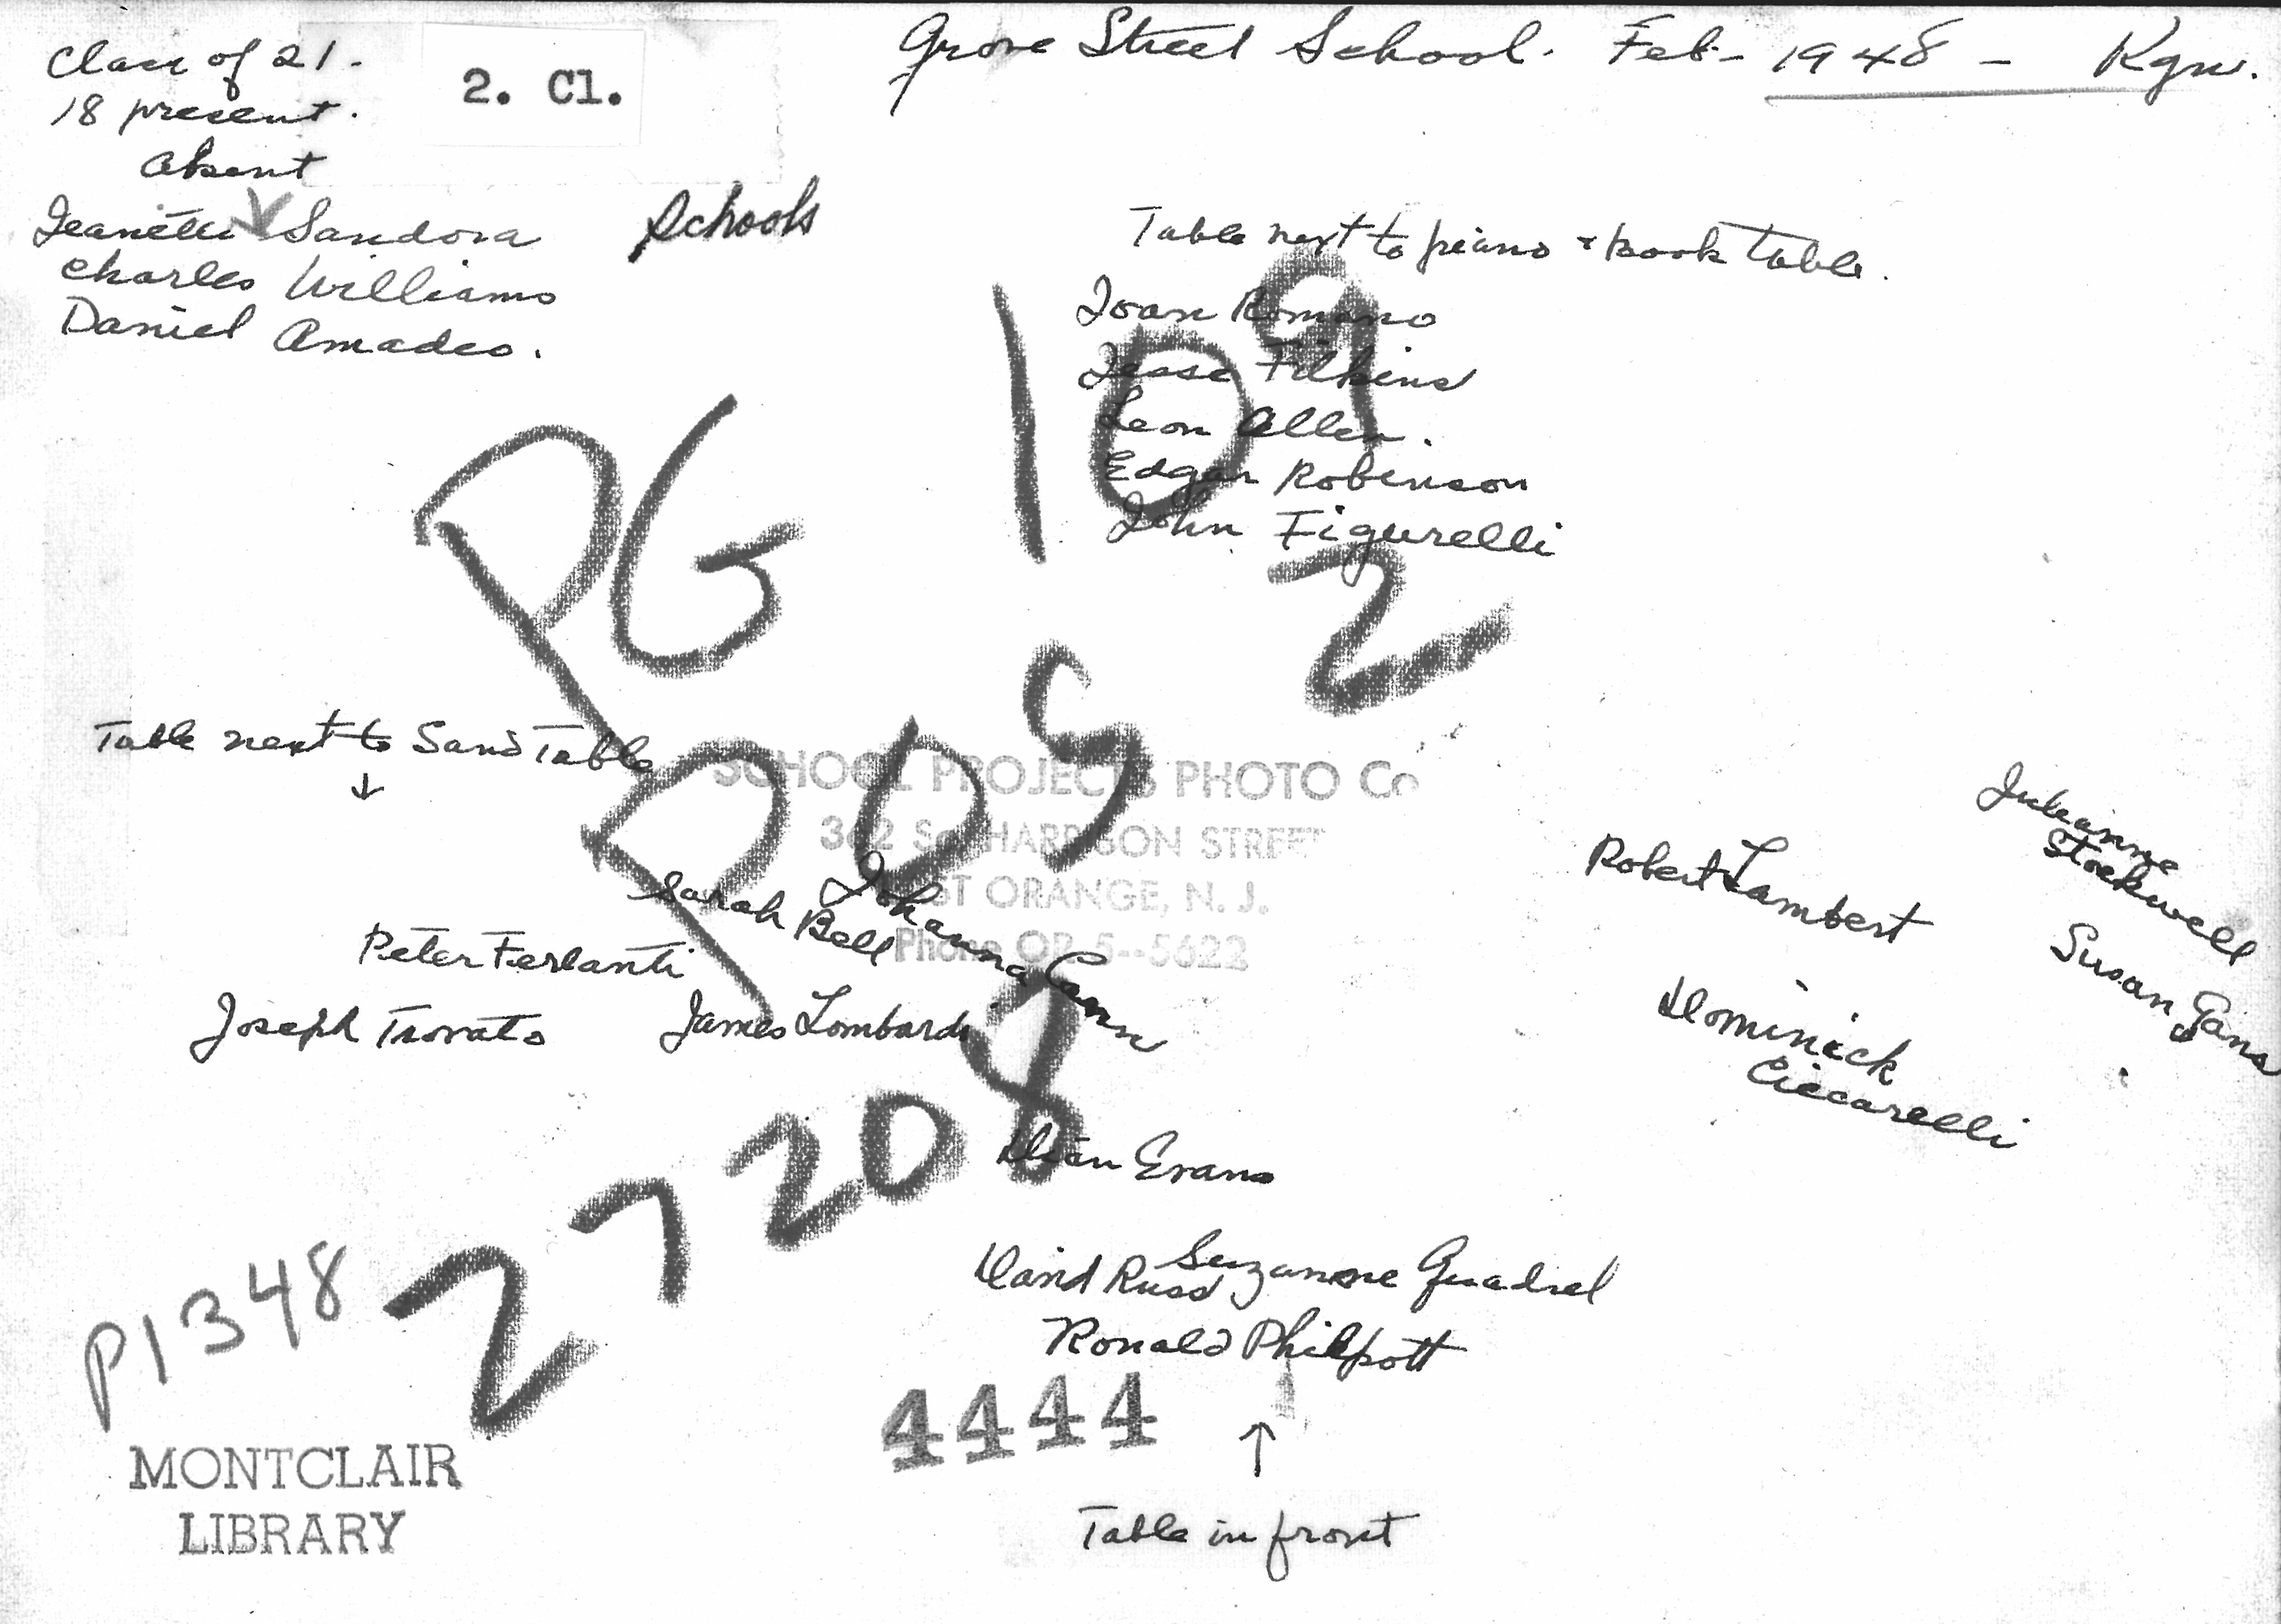 Grove Street School. Feb- 1948 - Kgn.
Class of 21.
18 present.
absent
Jeanette Sandora
Charles Williams
Daniel Amadeo.
2. Cl.
Schools
Table next to piano & book table.
Joan Romano
Jesse Filkins
Leon Allen.
Edgar Robinson
John Figurelli
PG 109
2
POS
27208
Table next to Sand Table
↓
SCHOOL PROJECTS PHOTO Co
362 So. HARRISON STREET
ST ORANGE, N. J.
Phone OR 5--5622
Sarah Bell
Johanna
Peter Ferlanti
Joseph Trovato
James Lombardi
Robert Lambert
Julianne
Stockwell
Susan Gans
Dominick
Ciccarelli
Dian Evans
David Russ
Suzanne Quadrel
Ronald Philpott
4444
↑
Table in front
P1348
MONTCLAIR
LIBRARY